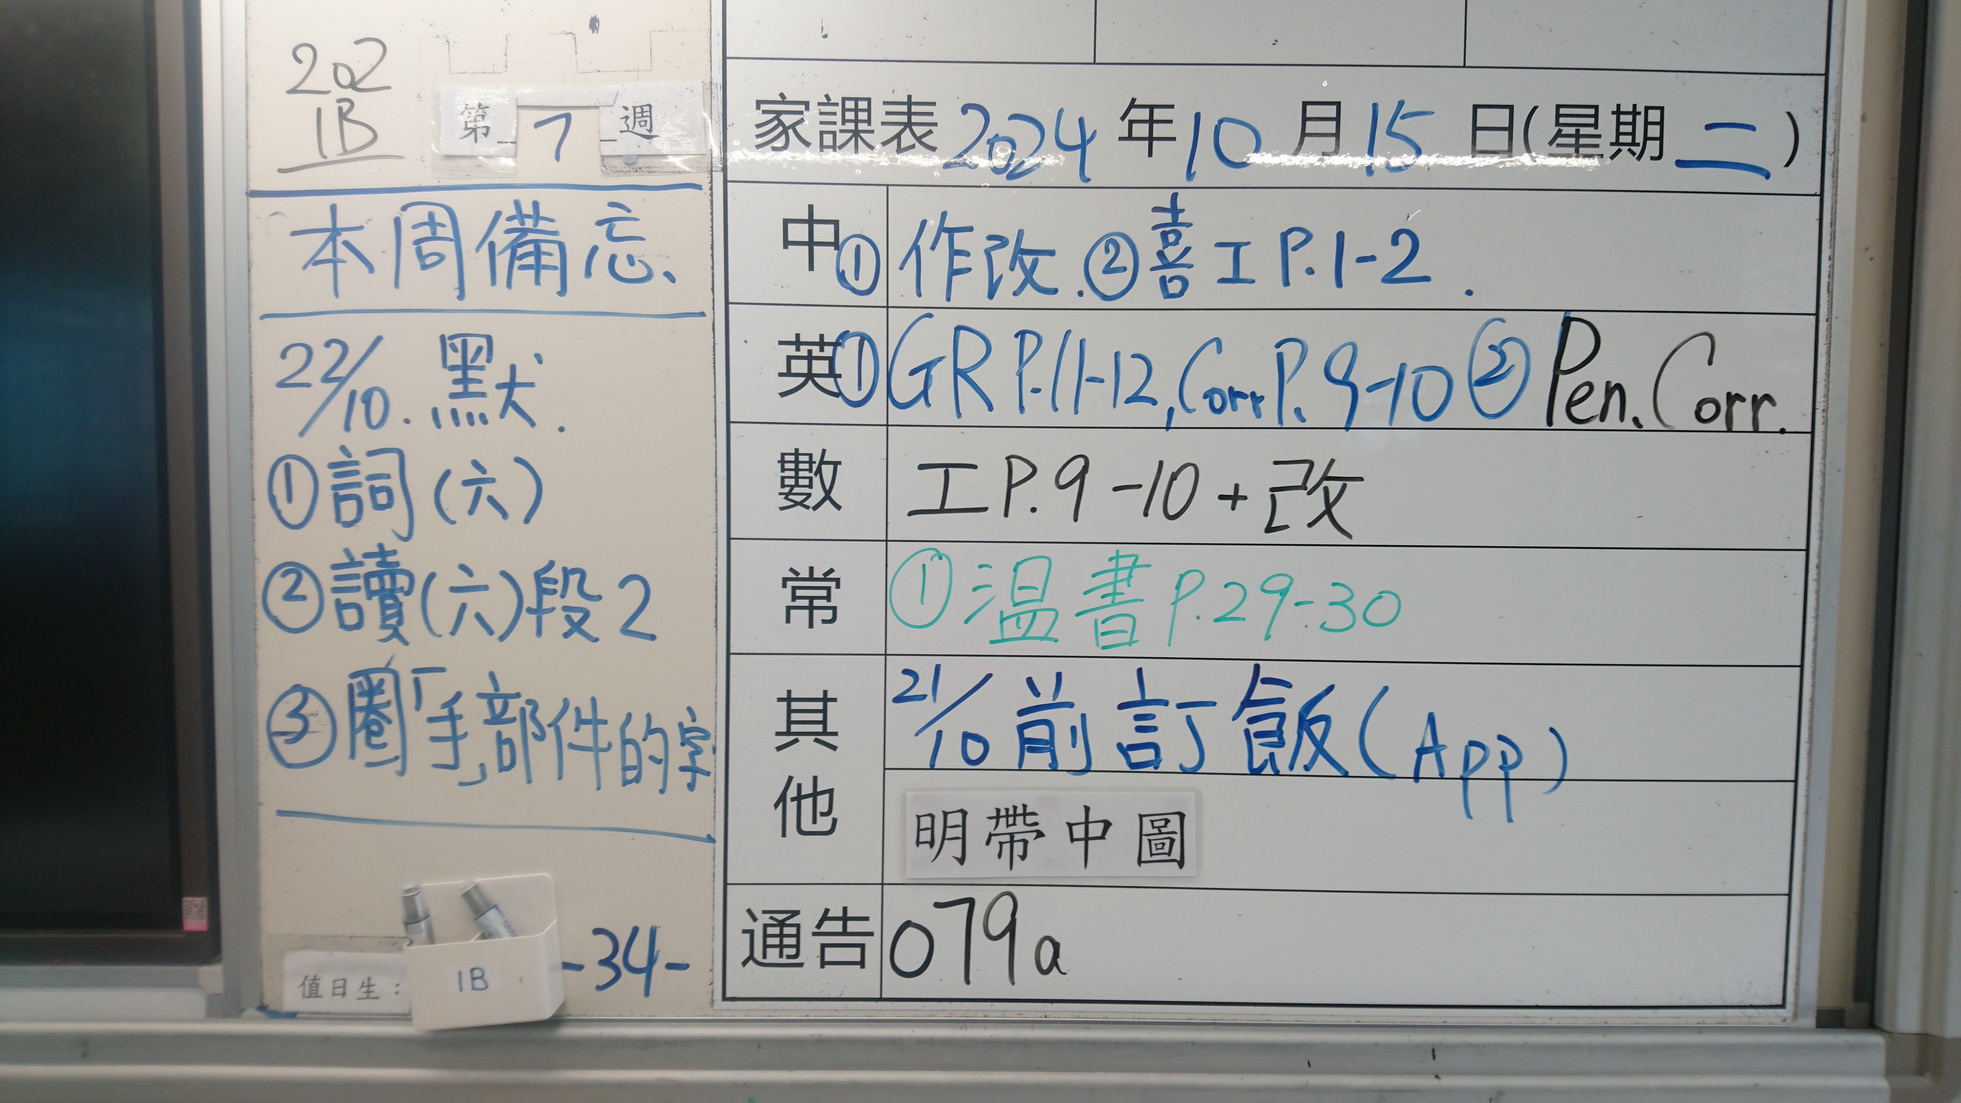 202
1B
第 7 週
本周備忘、
22/10. 默.
①詞(六)
②讀(六)段2
③圈「手」部件的字
值日生：
1B
-34-
家課表 2024 年 10 月 15 日(星期 二 )
中 ①作改.②喜工P.1-2.
英 ①GR P.11-12, Corr P. 9-10 ② Pen. Corr.
數 工P.9-10+改
常 ①溫書P.29-30
其他 21/10前訂飯(App)
明帶中圖
通告 079a